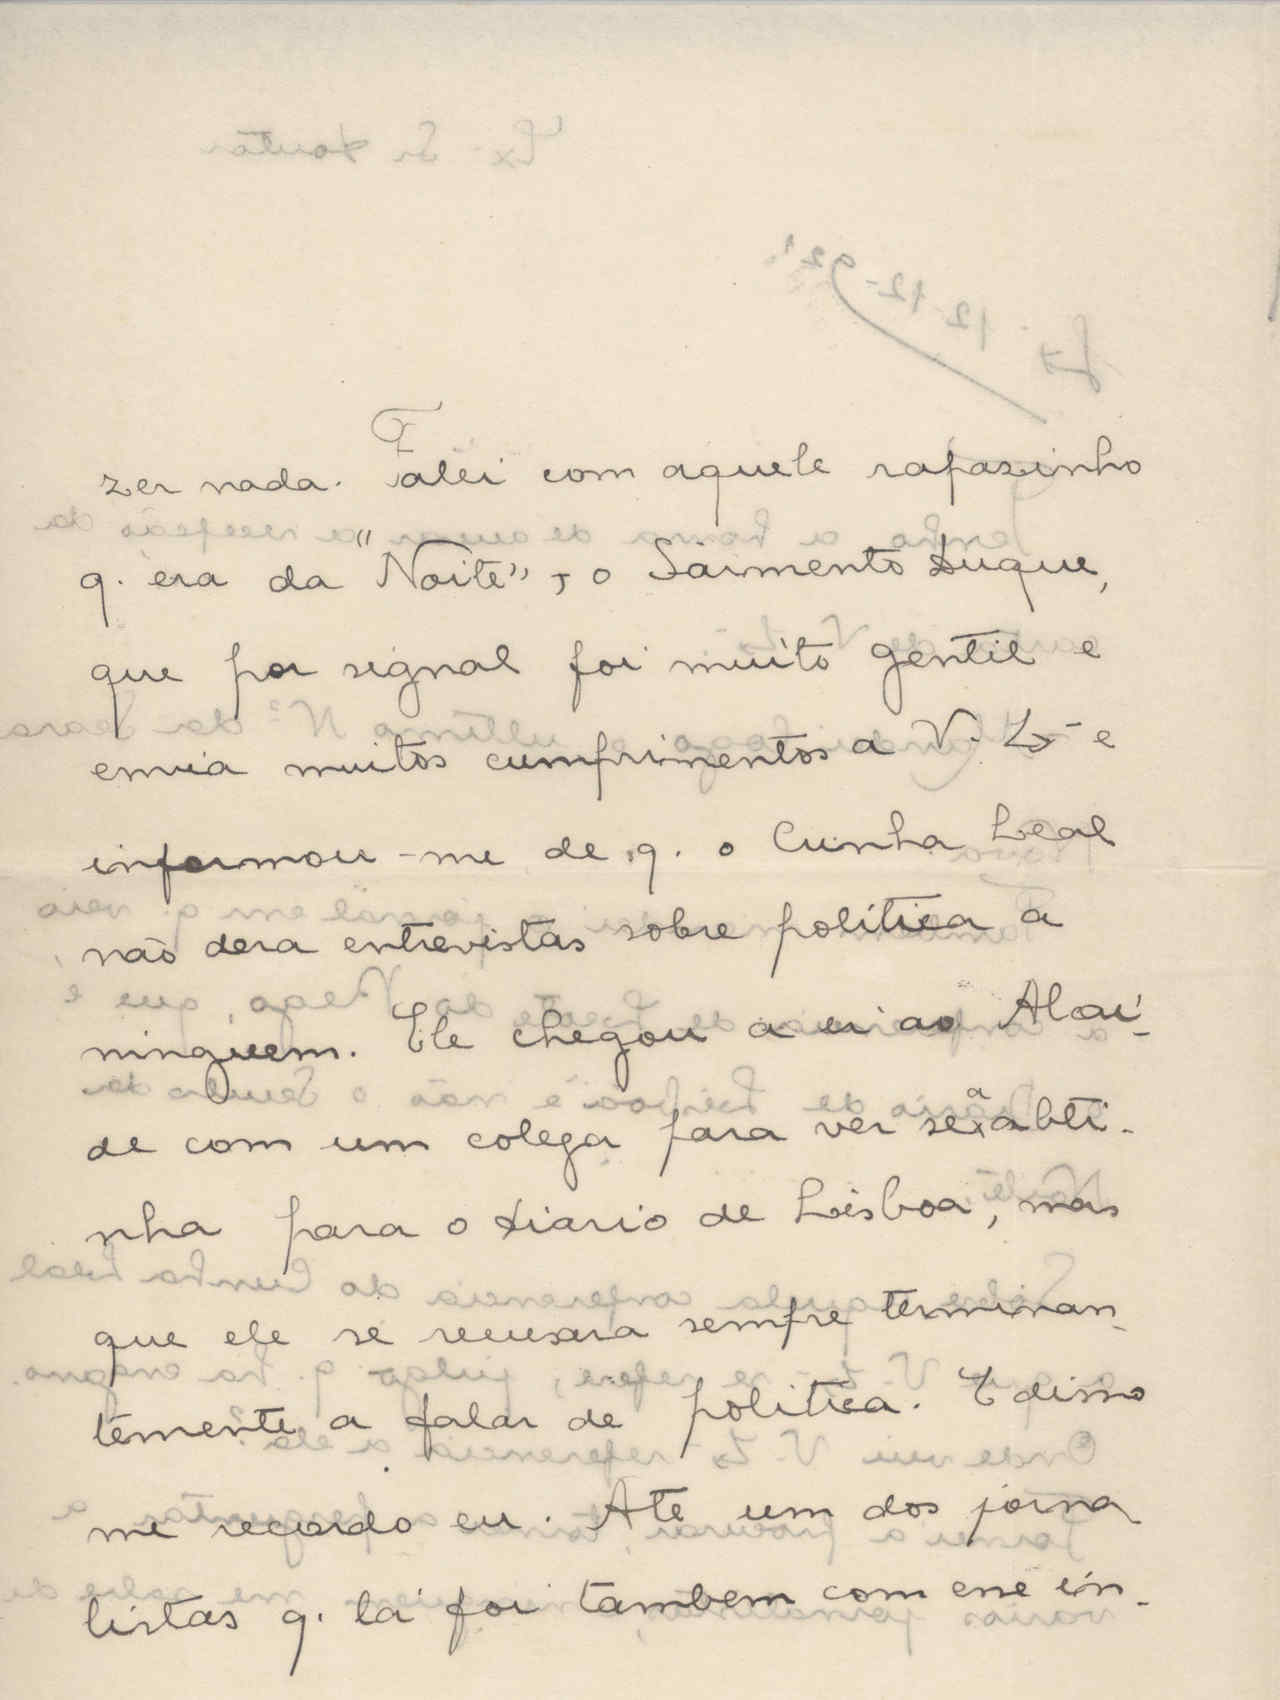 zer nada. Falei com aquele rapazinho
q. era da "Noite", o Sarmento Duque,
que por signal foi muito gentil e
envia muitos cumprimentos a V. Ex e
informou-me de q. o Cunha Leal
não dera entrevistas sobre política a
ninguem. Ele chegou a ir ao Alcai-
de com um colega para ver se a abti-
nha para o Diario de Lisboa, mas
que ele se recusara sempre terminan-
temente a falar de politica. E disso
me recordo eu. Até um dos jorna
listas q. lá foi tambem com esse in-